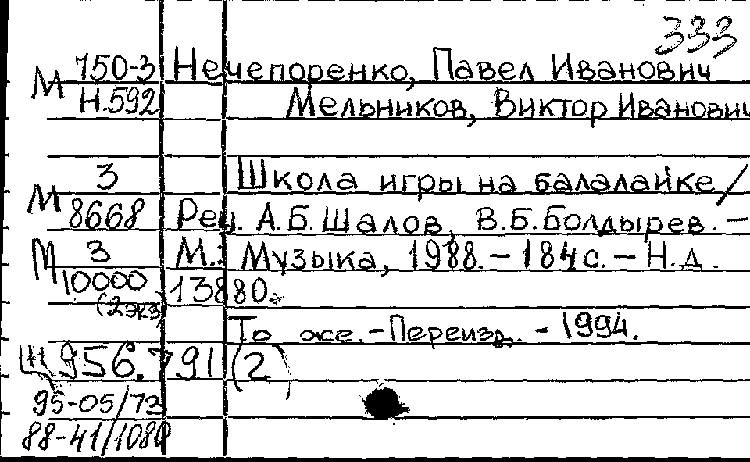 333
М 750-3 Нечепоренко, Павел Иванович
Н.592 Мельников, Виктор Иванович
М 3 Школа игры на балалайке /
8668 Рец. А.Б.Шалов, В.Б.Болдырев. –
М 3 М.: Музыка, 1988. – 184 с. – Н.д.
10000 13880.
(2экз)
То же. – Переизд. – 1994.
Щ 956.791 (2)
95-05/73
88-41/1080